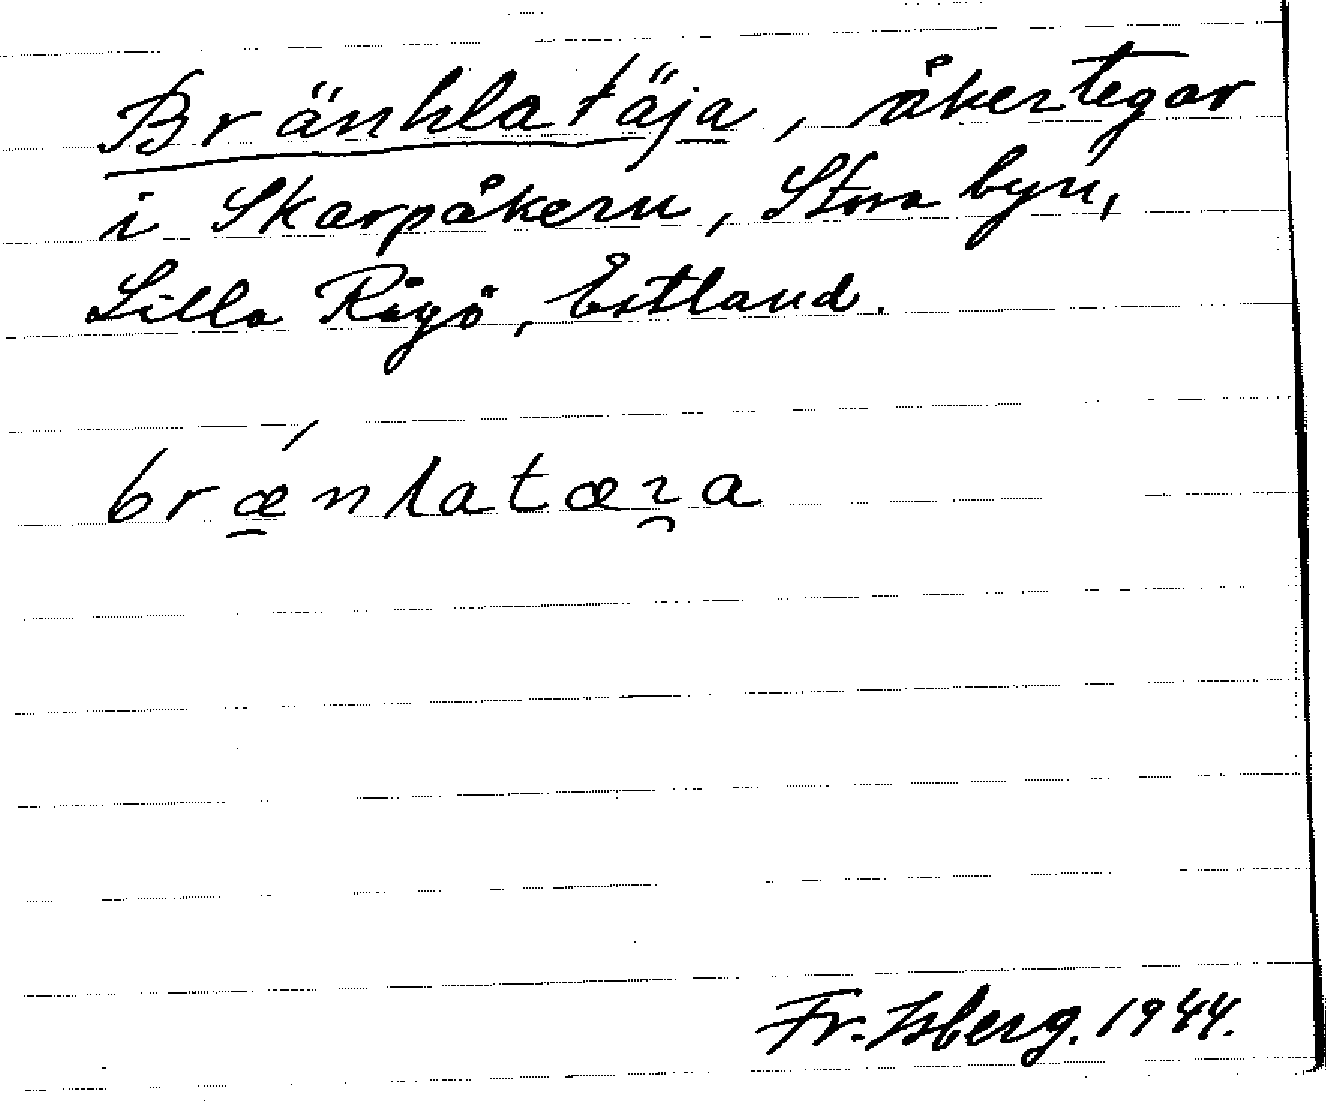 Bränklatäja, åkertegar
i Skarpåkern, Stora byn,
Lilla Rågö, Estland.
Fr. Isberg. 1944.